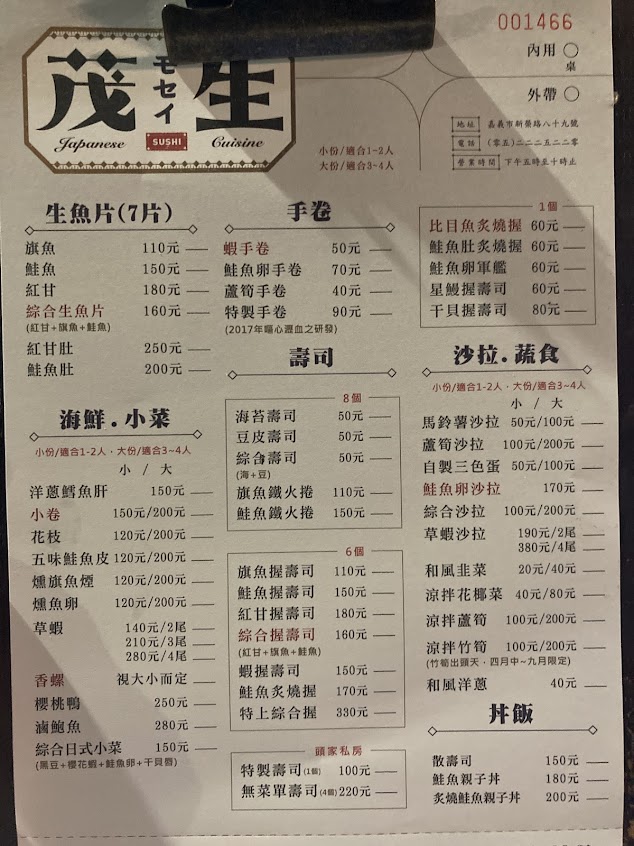 001466
內用
桌
外帶
茂生
モセイ
Japanese SUSHI Cuisine
地址 嘉義市新榮路八十九號
電話 (零五)二二二五二二零
營業時間 下午五時至十時止
小份/適合1-2人
大份/適合3~4人
生魚片(7片)
旗魚 110元
鮭魚 150元
紅甘 180元
綜合生魚片 160元
(紅甘+旗魚+鮭魚)
紅甘肚 250元
鮭魚肚 200元
海鮮.小菜
小份/適合1-2人.大份/適合3~4人
小 / 大
洋蔥鱈魚肝 150元
小卷 150元/200元
花枝 120元/200元
五味鮭魚皮 120元/200元
燻旗魚煙 120元/200元
燻魚卵 120元/200元
草蝦 140元/2尾
210元/3尾
280元/4尾
香螺 視大小而定
櫻桃鴨 250元
滷鮑魚 280元
綜合日式小菜 150元
(黑豆+櫻花蝦+鮭魚卵+干貝唇)
手卷
蝦手卷 50元
鮭魚卵手卷 70元
蘆筍手卷 40元
特製手卷 90元
(2017年嘔心瀝血之研發)
壽司
8個
海苔壽司 50元
豆皮壽司 50元
綜合壽司 50元
(海+豆)
旗魚鐵火捲 110元
鮭魚鐵火捲 150元
6個
旗魚握壽司 110元
鮭魚握壽司 150元
紅甘握壽司 180元
綜合握壽司 160元
(紅甘+旗魚+鮭魚)
蝦握壽司 150元
鮭魚炙燒握 170元
特上綜合握 330元
頭家私房
特製壽司(1個) 100元
無菜單壽司(4個) 220元
1個
比目魚炙燒握 60元
鮭魚肚炙燒握 60元
鮭魚卵軍艦 60元
星鰻握壽司 60元
干貝握壽司 80元
沙拉.蔬食
小份/適合1-2人.大份/適合3~4人
小 / 大
馬鈴薯沙拉 50元/100元
蘆筍沙拉 100元/200元
自製三色蛋 50元/100元
鮭魚卵沙拉 170元
綜合沙拉 100元/200元
草蝦沙拉 190元/2尾
380元/4尾
和風韭菜 20元/40元
涼拌花椰菜 40元/80元
涼拌蘆筍 100元/200元
涼拌竹筍 100元/200元
(竹筍出頭天.四月中~九月限定)
和風洋蔥 40元
丼飯
散壽司 150元
鮭魚親子丼 180元
炙燒鮭魚親子丼 200元